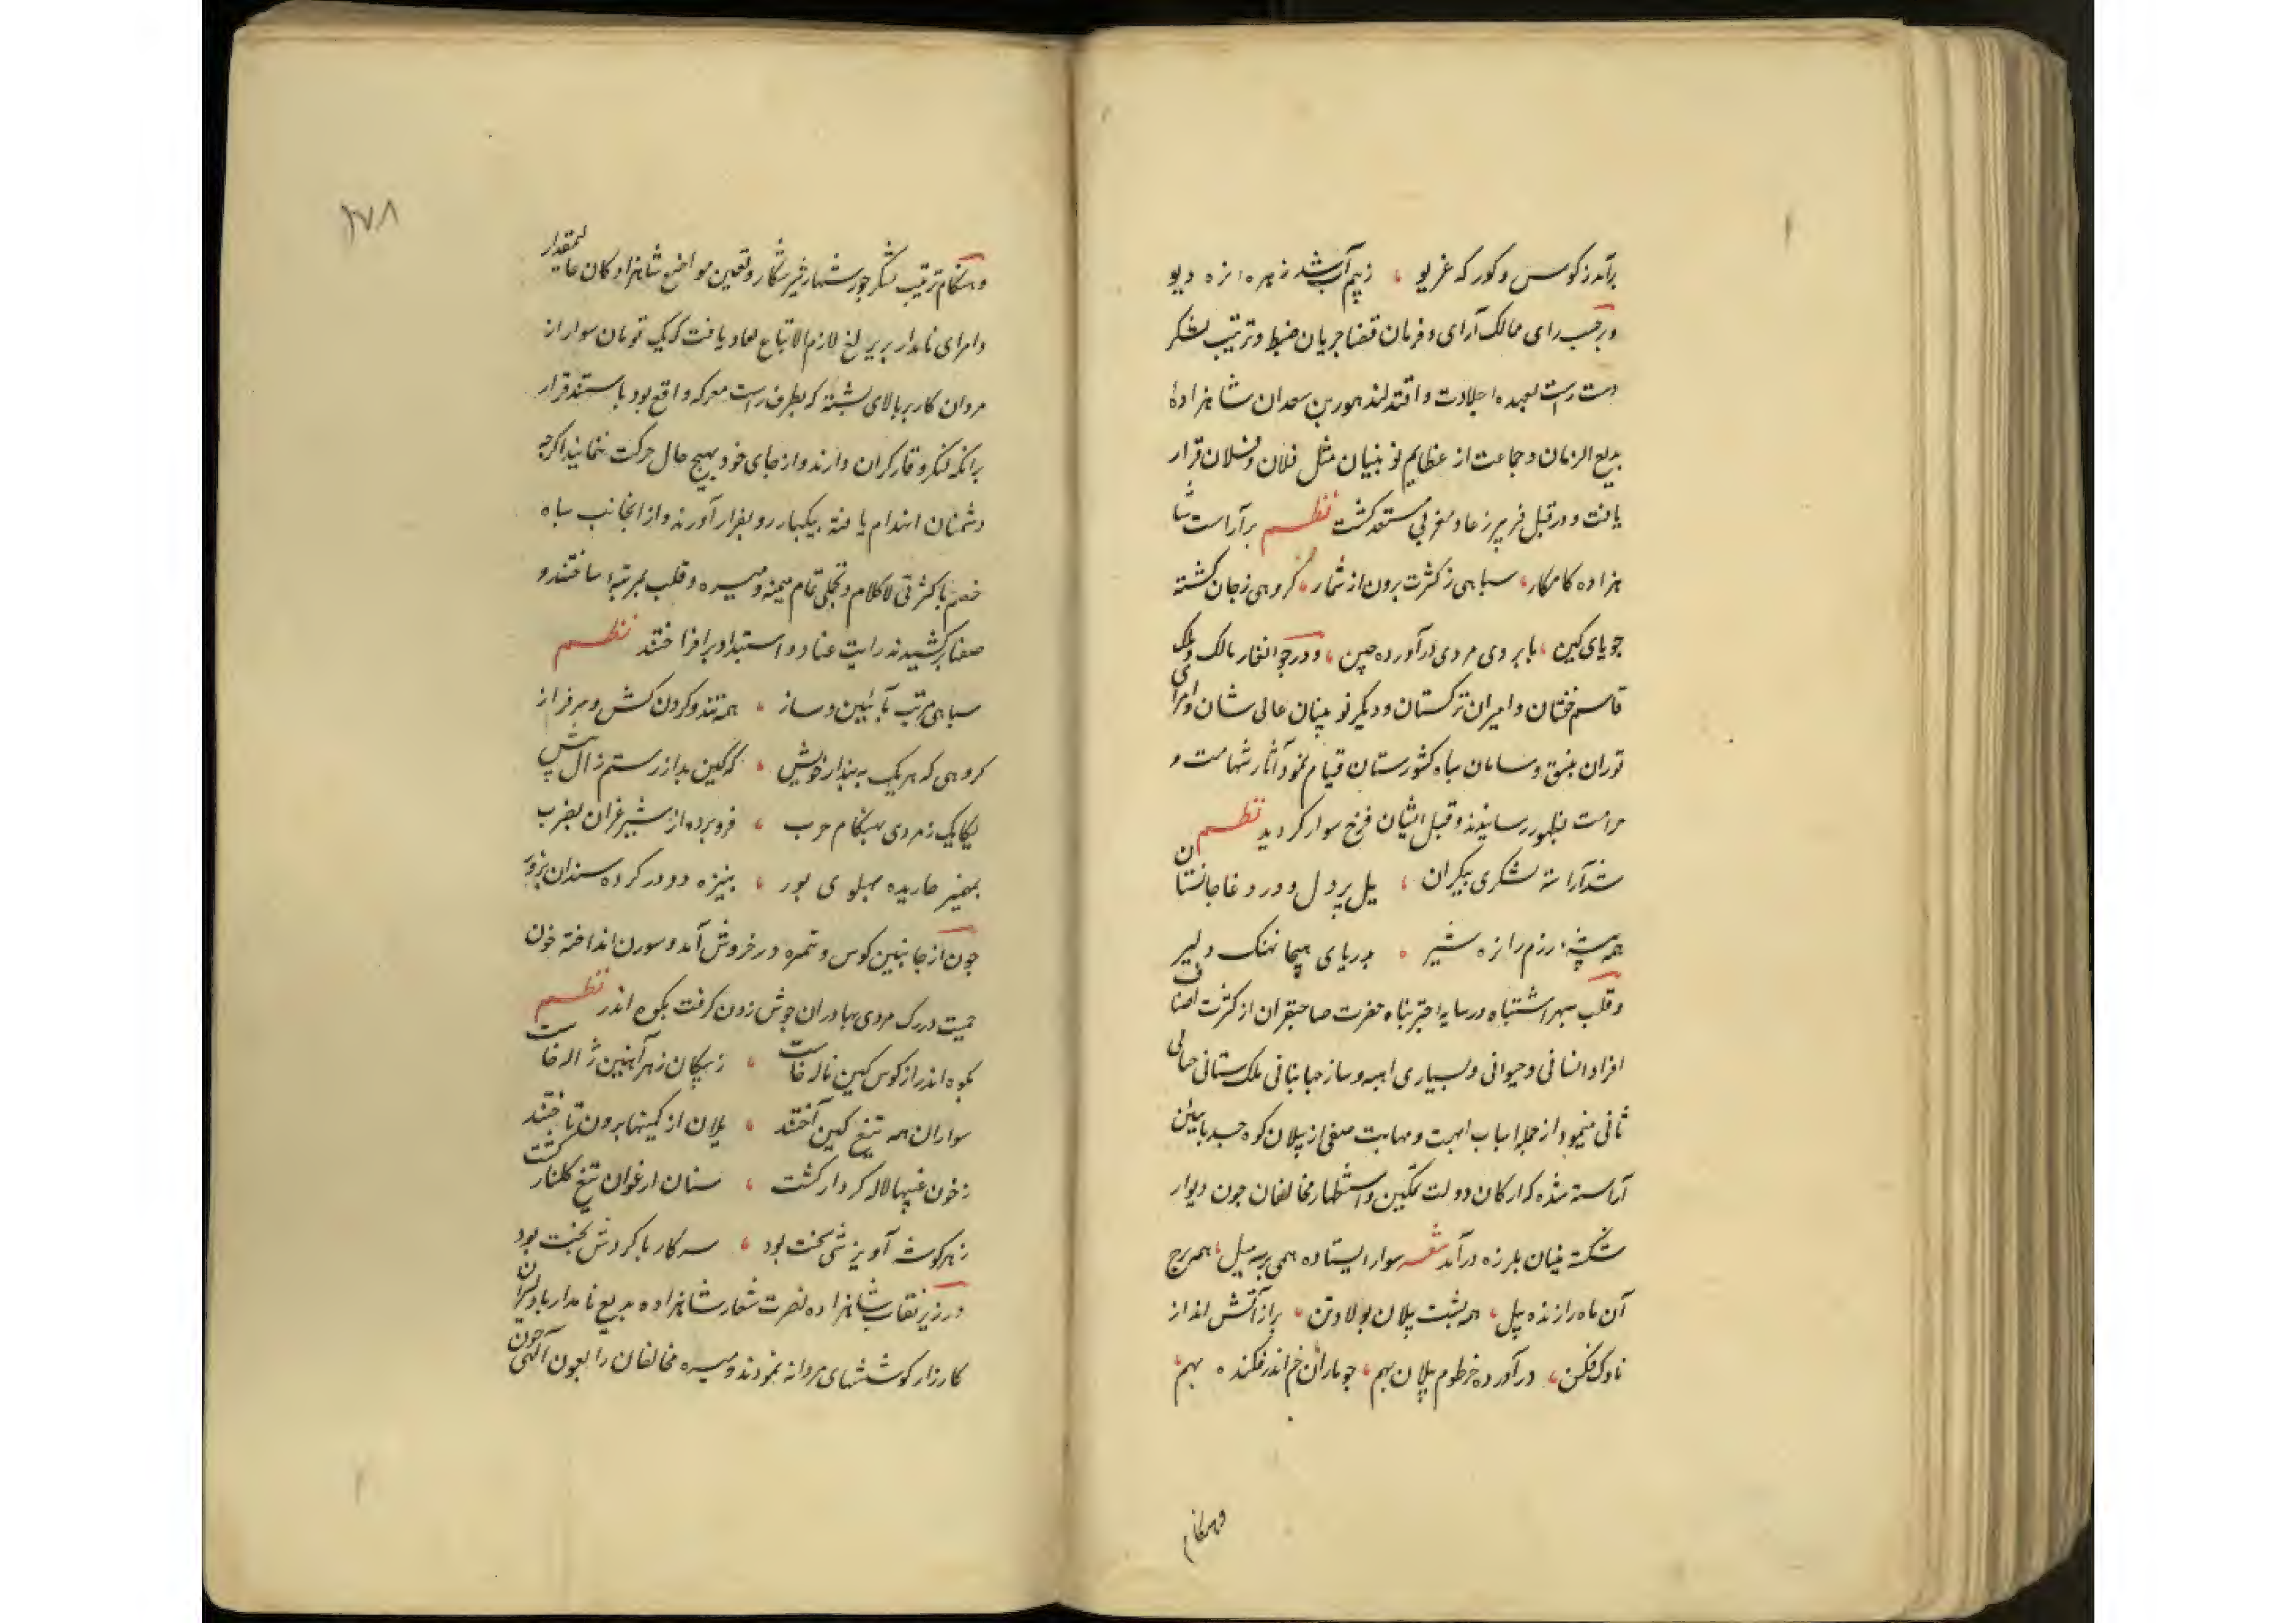 برآمد ز کوس و کورکه غریو ، ز بیم آب شد زهره نره دیو
و بر حسب رای ممالک آرای و فرمان قضا جریان ضبط و ترتیب لشکر
دست راست بعهده جلادت و اقتدار لندهور بن سعدان شاهزادهٔ
بدیع الزمان و جماعت از عظایم نوینیان مثل فلان و فلان قرار
یافت و در قبل فریبرز عاد مغربی مستعد کشت نظم برآراست شا
هزاده کامکار ، سباهی ز کثرت برون از شمار ، گروهی ز جان کشته
جویای کین ، بابروی مردی درآورده چین ، و در جوانغار مالک و ملک
قاسم ختان و امیران ترکستان و دیکر نوینان عالی شان و امرای
توران بنسق و سامان سباه کشورستان قیام نمود آثار شهامت و
صرامت بظهور رسانیدند و قبل ایشان فرخ سوار کردید نظم
شد آراسته لشکری بیکران ، یل پردل و در وغا جانستان
همه بیشهٔ رزم را نره شیر ، بدریای هیجا نهنک دلیر
و قلب سپهر اشتباه در سایه چتر بناه حضرت صاحبقران از کثرت اصناف
افراد انسانی و حیوانی و بسیاری اهبه و ساز جهانبانی ملک ستانی حالی
ثانی مینمود از جمله اسباب ابهت و مهابت صفی از پیلان کوه جسد بآیین
آراسته شده که ارکان دولت تمکین و استظهار مخالفان جون دیوار
شکسته بنیان بلرزه درآمد شعر سوار ایستاده همی بر سه میل ، همه برج
آن ماه را زنده پیل ، همه بشت پیلان بولادتن ، بر از آتش انداز
ناوک فکن ، درآورده خرطوم پیلان بهم ، جو ماران خم اندر فکنده بهم ،
و هنکام
۱۷۸
و هنکام ترتیب لشکر جور شهار شیر شکار و تعیین مواضع شاهزادکان عالیمقدار
و امرای نامدار بر یرلغ لازم الاتباع نفاد یافت که یک تومان سوار از
مردان کار بر بالای بشته که بطرف راست معرکه واقع بود باستند قرار
برانکه لنکر وقار کران دارند و از جای خود بهیچ حال حرکت ننمایند اکرچه
دشمنان انهدام یافته بیکبار رو بفرار آورند و از انجانب سباه
خصم با کثرتی لاکلام و تجملی تمام میمنه و میسره و قلب مرتبه ساختند و
صفها برکشیدند رایت عناد و استبداد برافراختند نظم
سباهی مرتب بآیین و ساز ، همه تند و کردن کش و سرفراز
کروهی که هریک به بندار خویش ، که کین بد از رستم زال بیش
یکایک ز مردی بهنکام حرب ، فرو برده از شیر غران بضرب
بخنجر دریده بهلوی بور ، بنیزه دو در کرده سندان بزور
جون از جانبین کوس و نقره در خروش آمد و سورن انداخته خون
حمیت در رک مردی بهادران جوش زدن کرفت بکوه اندر نظم
بکوه اندر از کوس کین ناله خاست ، ز بیکان زهر آهنین ژاله خاست
سواران همه تیغ کین آختند ، یلان از کمینها برون تاختند
ز خون غیبها لاله کردار کشت ، سنان ارغوان تیغ کلنار کشت
ز هر کوشه آویزشی سخت بود ، سر کار با کردش بخت بود
در زیر نقاب شاهزاده نصرت شعار شاهزاده بدیع نامدار با دلیران
کارزار کوششهای مردانه نمودند و میسره مخالفان را بعون آلهی جون